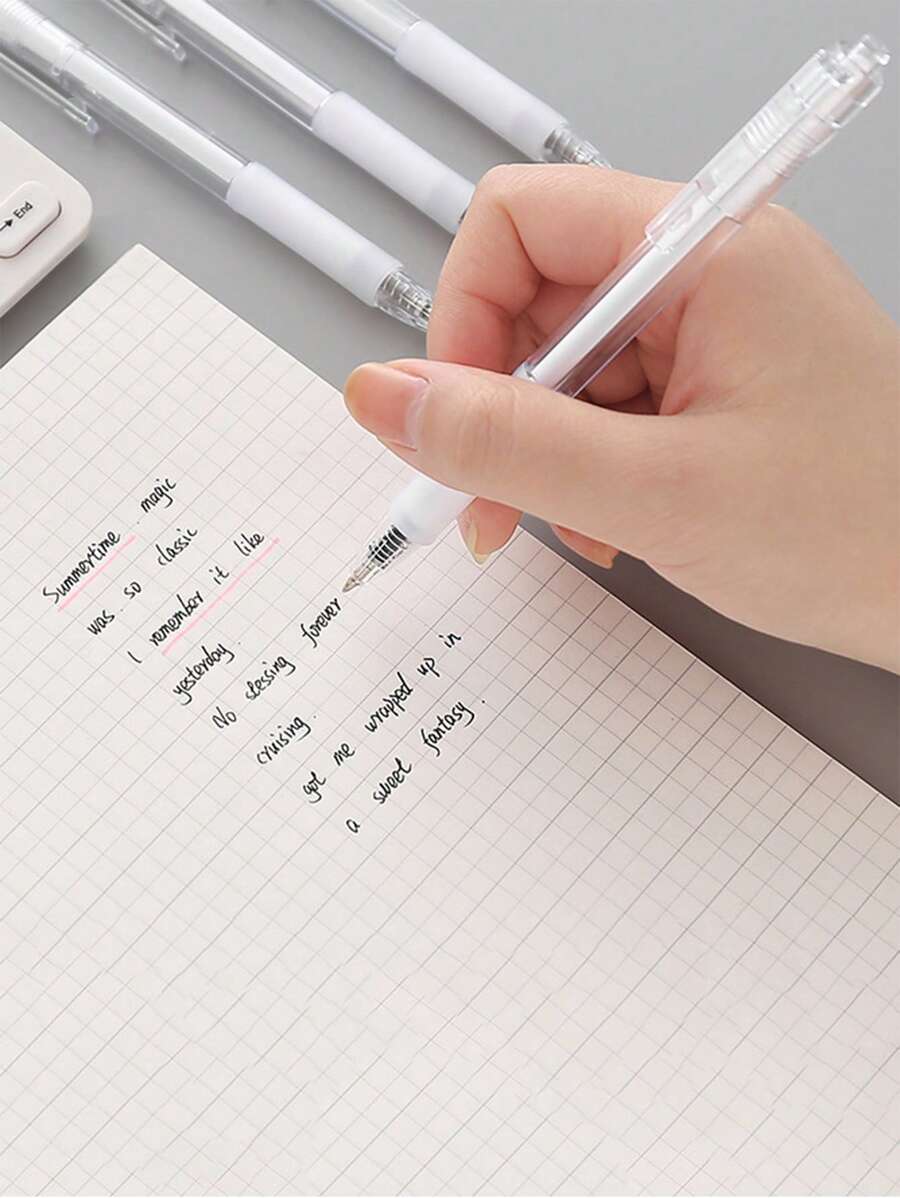 → End
Summertime . magic
was . so classic
I remember it like
yesterday.
No slessing forever
cruising.
got me wrapped up in
a sweet fantasy.